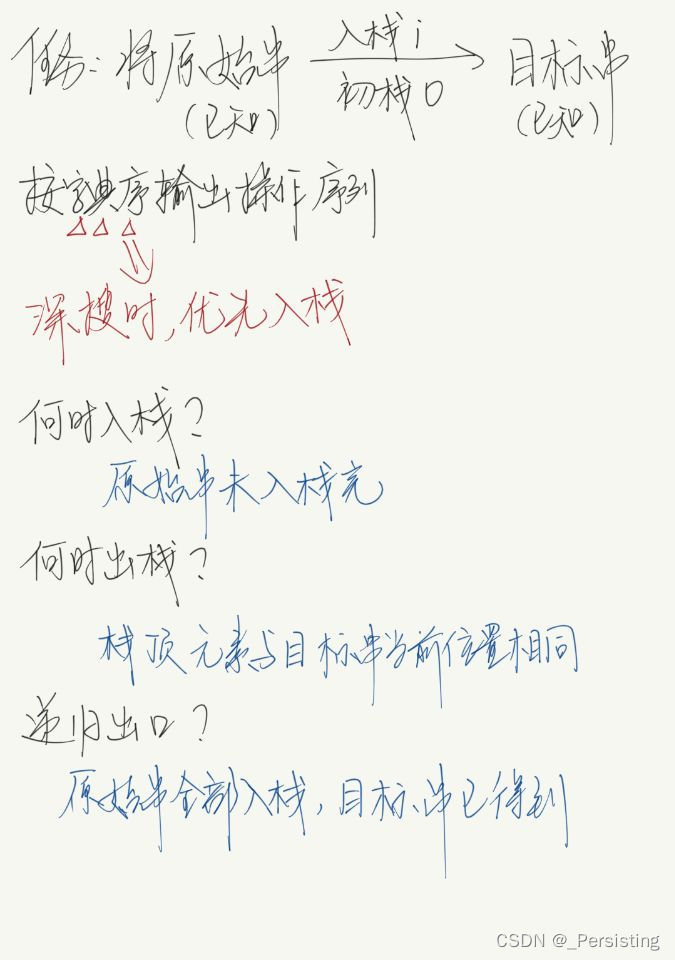 任务：将原始串 入栈 i 目标串
(已知) 初栈 O (已知)
按字典序输出操作序列
深搜时，优先入栈
何时入栈？
原始串未入栈完
何时出栈？
栈顶元素与目标串当前位置相同
递归出口？
原始串全部入栈，目标串已得到
CSDN @_Persisting